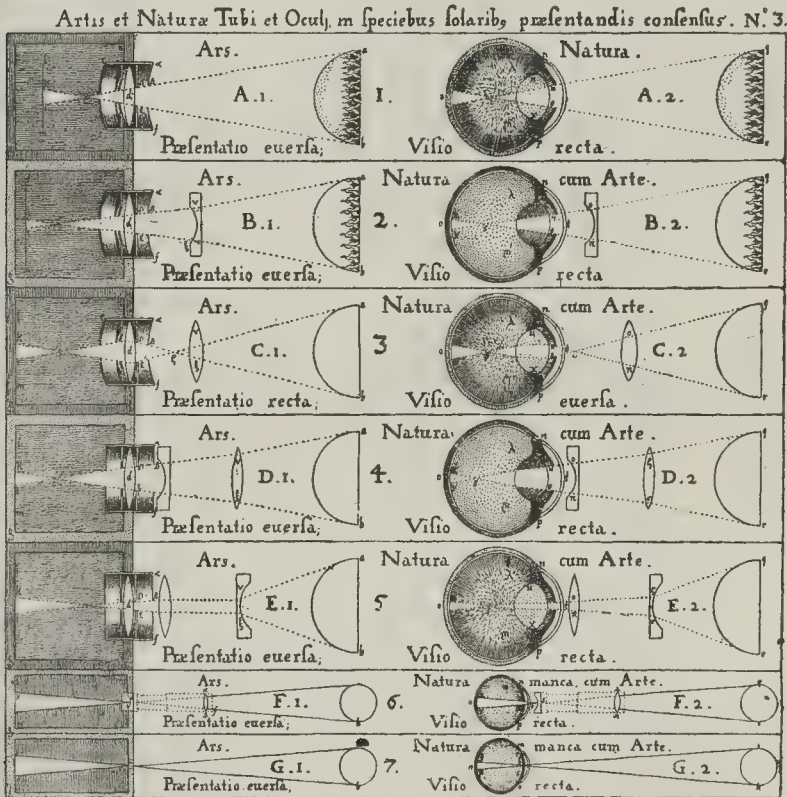 Artis et Naturæ Tubi et Oculj, in ſpeciebus ſolarib9 præſentandis conſenſus. N.º 3.
Ars. Natura.
A.1. 1. A.2.
Præſentatio euerſa; Viſio recta.
Ars. Natura cum Arte.
B.1. 2. B.2.
Præſentatio euerſa; Viſio recta
Ars. Natura cum Arte.
C.1. 3 C.2
Præſentatio recta; Viſio euerſa.
Ars. Natura cum Arte.
D.1. 4. D.2
Præſentatio euerſa; Viſio recta.
Ars. Natura cum Arte.
E.1. 5 E.2.
Præſentatio euerſa; Viſio recta.
Ars. Natura manca cum Arte.
F.1. 6. F.2.
Præſentatio euerſa; Viſio recta.
Ars. Natura manca cum Arte.
G.1. 7. G.2.
Præſentatio euerſa; Viſio recta.